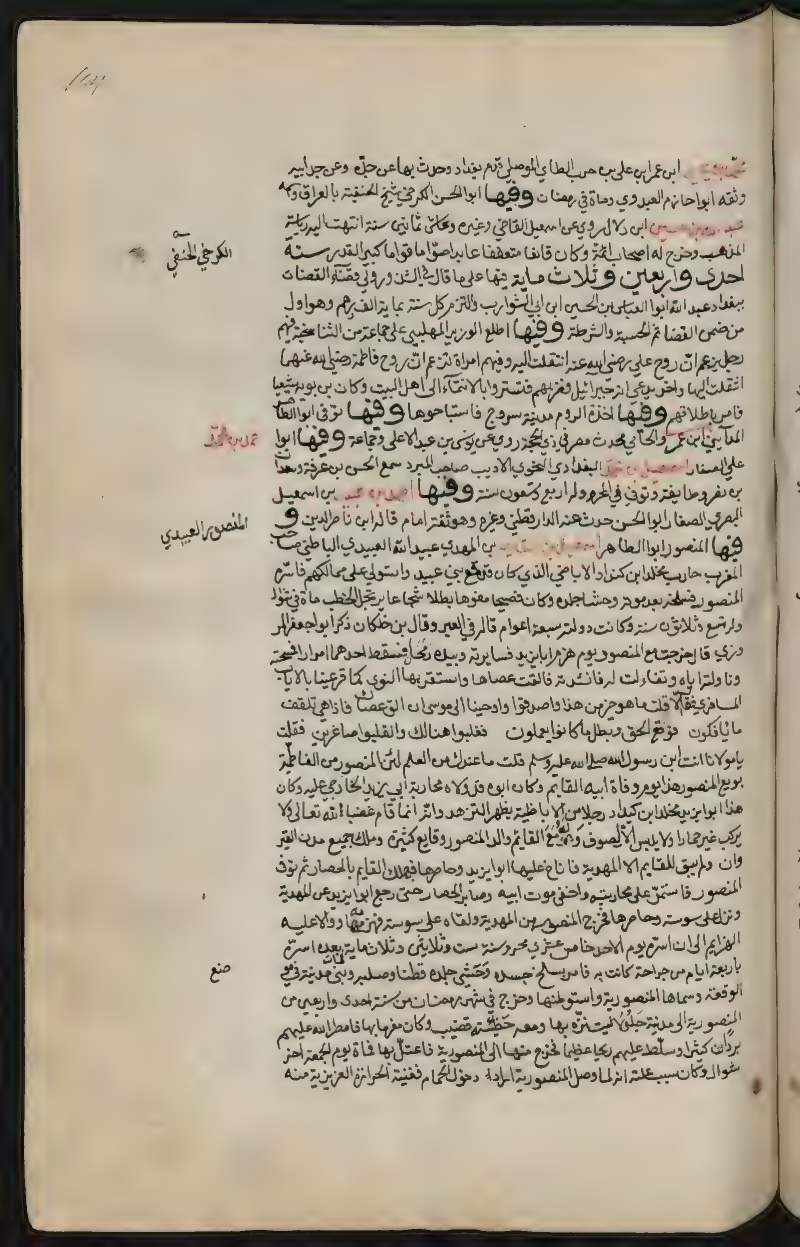 ابن عمر ابن علي بن حرب الطاي الموصلي قدم بغداد وحدث بها عن جده وعن جد ابيه
وثقه ابو حازم العبدوي ومات في رمضان وفيها ابو الحسن الكرخي شيخ الحنفية بالعراق
ابن دلال روي عن اسمعيل القاضي وغيره وعاش ثمانين سنة انتهت اليه رياسة
المذهب وخرج له اصحاب ائمة وكان قانعا متعففا عابدا صواما قواما كبير القدر سنة
الكرخي الحنفي
احدى واربعين وثلاث ماية فيها على ما قال وولي قضاء القضات
ببغداد عبد الله ابوا العباس بن الحسين ابن ابي الشوارب والتزم كل سنة بماية الف درهم وهو اول
من ضمن القضا ثم الحسبة والشرطة وفيها اطلع الوزير المهلبي على جماعة من التناسخية فيهم
رجل يزعم ان روح علي رضي الله عنه انتقلت اليه وفيهم امراة تزعم ان روح فاطمة رضي الله عنها
انتقلت اليها واخر يدعي انه جبرائيل فضربهم فتستروا بالانتماء الى اهل البيت وكان بن بويه شيعيا
فامر باطلاقهم وفيها اخذة الروم مدينة سروج فاستباحوها وفيها توفى ابو الطاهر
المدايني ابن عمرو الحاني محدث مصر في ذي الحجة روي عن يونس بن عبد الاعلى وجماعة وفيها ابوا
علي الصفار اسمعيل بن محمد البغدادي النحوي الاديب صاحب المبرد سمع الحسن بن عرفة وسعدان
بن نصر وطايفة وتوفي في المحرم وله اربع وتسعون سنة وفيها احمد بن عبيد بن اسمعيل
البصري الصفار ابو الحسن حدث عنه الدارقطني وغيره وهو ثقة امام قاله ابن ناصر الدين و
المنصور العبيدي
فيها المنصور ابوا الطاهر اسمعيل بن القايم بن المهدي عبيد الله العبيدي الباطني صاحب
المغرب حارب مخلد ابن كنداد الاباضي الذي كان قد قمع بني عبيد واستولي على ممالكهم فاسره
المنصور فسلخه بعد موته وحشا جلده وكان فصيحا مفوها بطلا شجاعا يرتجل الخطب مات في شوال
وله تسع وثلاثون سنة وكانت دولته سبعة اعوام قاله في العبر وقال بن خلكان ذكر ابو جعفر المر
وزي قال خرجت مع المنصور يوم هزم ابا يزيد فسايرته وبيده رمحان فسقط احدهما مرارا فمسحته
وناولته اياه وتفاءلت له فانشدته فالقت عصاها واستقر بها النوي كما قر عينا بالاياب
المسافر فقال الا قلت ما هو خير من هذا واصدق واوحينا الى موسى ان الق عصاك فاذا هي تلقف
ما يأفكون فوقع الحق وبطل ما كانوا يعملون فغلبوا هنالك وانقلبوا صاغرين فقلت
يا مولانا انت ابن رسول الله صلى الله عليه وسلم قلت ما عندك من العلم
بويع المنصور هذا يوم وفاة ابيه القايم وكان ابوه قد ولاه محاربة ابي يزيد الخارجي عليه وكان
هذا ابو يزيد مخلد ابن كيداد رجلا من الاباضية يظهر التزهد وانه انما قام غضبا لله تعالى ولا
يركب غير حمار ولا يلبس الا الصوف وله مع القائم والد المنصور وقايع كثيرة وملك جميع مدن القير
وان ولم يبق للقايم الا المهدية فاناخ عليها ابوا يزيد وحاصرها فهلك القايم بالحصار ثم توفى
المنصور فاستمر على محاربته واخفى موت ابيه وصابر الحصار حتى رجع ابوا يزيد عن المهدية
ونزل على سوسة وحاصرها فخرج المنصور من المهدية ولقاه على سوسة فهزمه ووالا عليه
الهزايم الى ان اسره يوم الاحد خامس عشري محرم سنة ست وثلاثين وثلاثماية بعد اسره
باربعة ايام من جراحة كانت به فامر بسلخ جسده وحشي جلده قطنا وصلبه وبنى مدينة في موضع
صنع
الوقعة وسماها المنصورية واستوطنها وخرج في شهر رمضان من سنة احدى واربعين من
المنصورية الى مدينة جلولا ليتنزه بها ومعه حظيته قضيب وكان مغرما بها فامطر الله عليهم
بردا كثيرا وسلط عليهم ريحا عظيما فخرج منها الى المنصورية فاعتل بها فمات يوم الجمعة اخر
شوال وكان سبب علته انه لما وصل المنصورية اراد دخول الحمام ففنيت الحرارة الغريزية منه